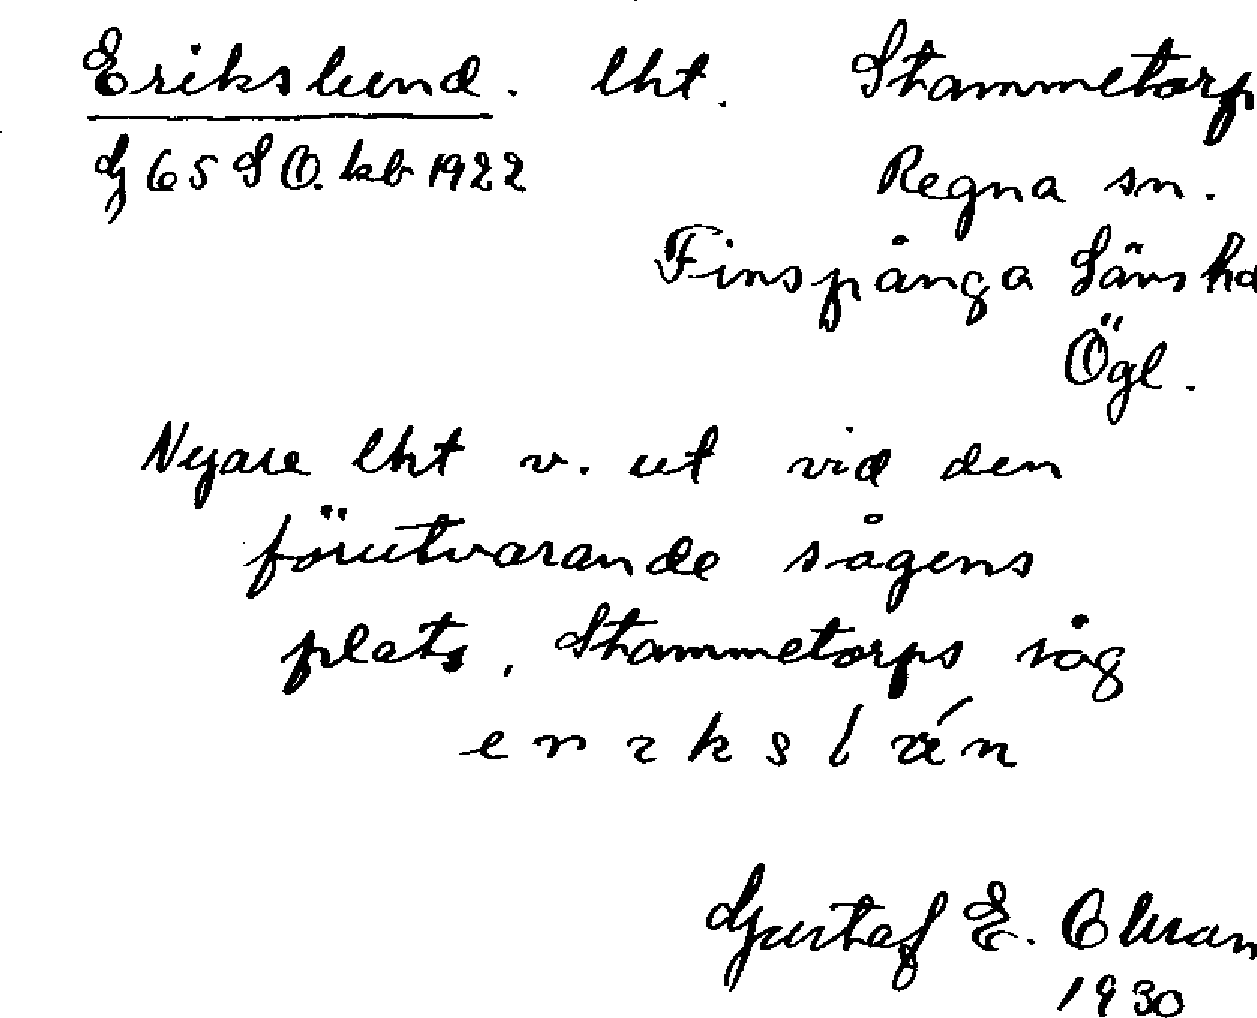 Erikslund. lht. Stammetorp
G 65 S O. kb 1922 Regna sn.
Finspånga länshd
Ögl.
Nyare lht v. ut vid den
förutvarande sågens
plats, Stammetorps såg
Gustaf E.
1930